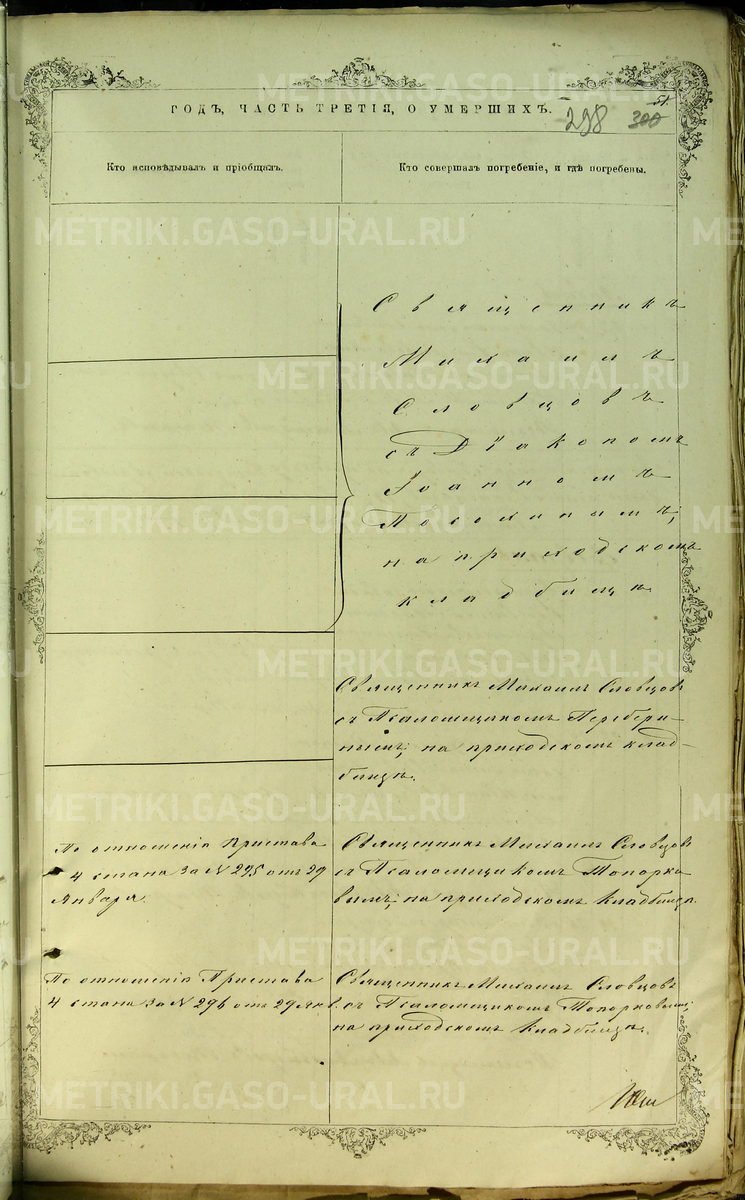 ГОДЪ, ЧАСТЬ ТРЕТІЯ, О УМЕРШИХЪ.
51.
298 300
Кто исповѣдывалъ и пріобщалъ.
Кто совершалъ погребеніе, и гдѣ погребены.
Священникъ
Михаилъ
Словцовъ
съ Діакономъ
Іоанномъ
Посохинымъ,
на приходскомъ
кладбищѣ
Священникъ Михаилъ Словцовъ
съ Псаломщикомъ Перебери-
нымъ; на приходскомъ клад-
бищѣ.
По отношенію Пристава
4 стана за № 295 отъ 29
Января.
Священникъ Михаилъ Словцовъ
съ Псаломщикомъ Топорко
вымъ; на приходскомъ кладбищѣ.
По отношенію Пристава
4 стана за № 296 отъ 29 янв.
Священникъ Михаилъ Словцовъ
съ Псаломщикомъ Топорковымъ;
на приходскомъ кладбищѣ.
METRIKI.GASO-URAL.RU